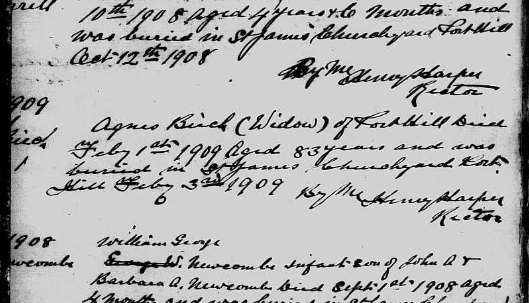 10th 1908 Aged 4 years & 6 months and
was buried in St James Churchyard Port Hill
Oct 12th 1908
By Me Henry Harper
Rector
1909
Agnes Birch (Widow) of Port Hill Died
Feby 1st 1909 Aged 83 years and was
buried in St James Churchyard Port
Hill Feby 3rd 1909 By Me Henry Harper
Rector
1908
William George
Newcombe
George W. Newcombe Infant son of John A &
Barbara A. Newcombe Died Sept 1st 1908 Aged
4 months and was buried in